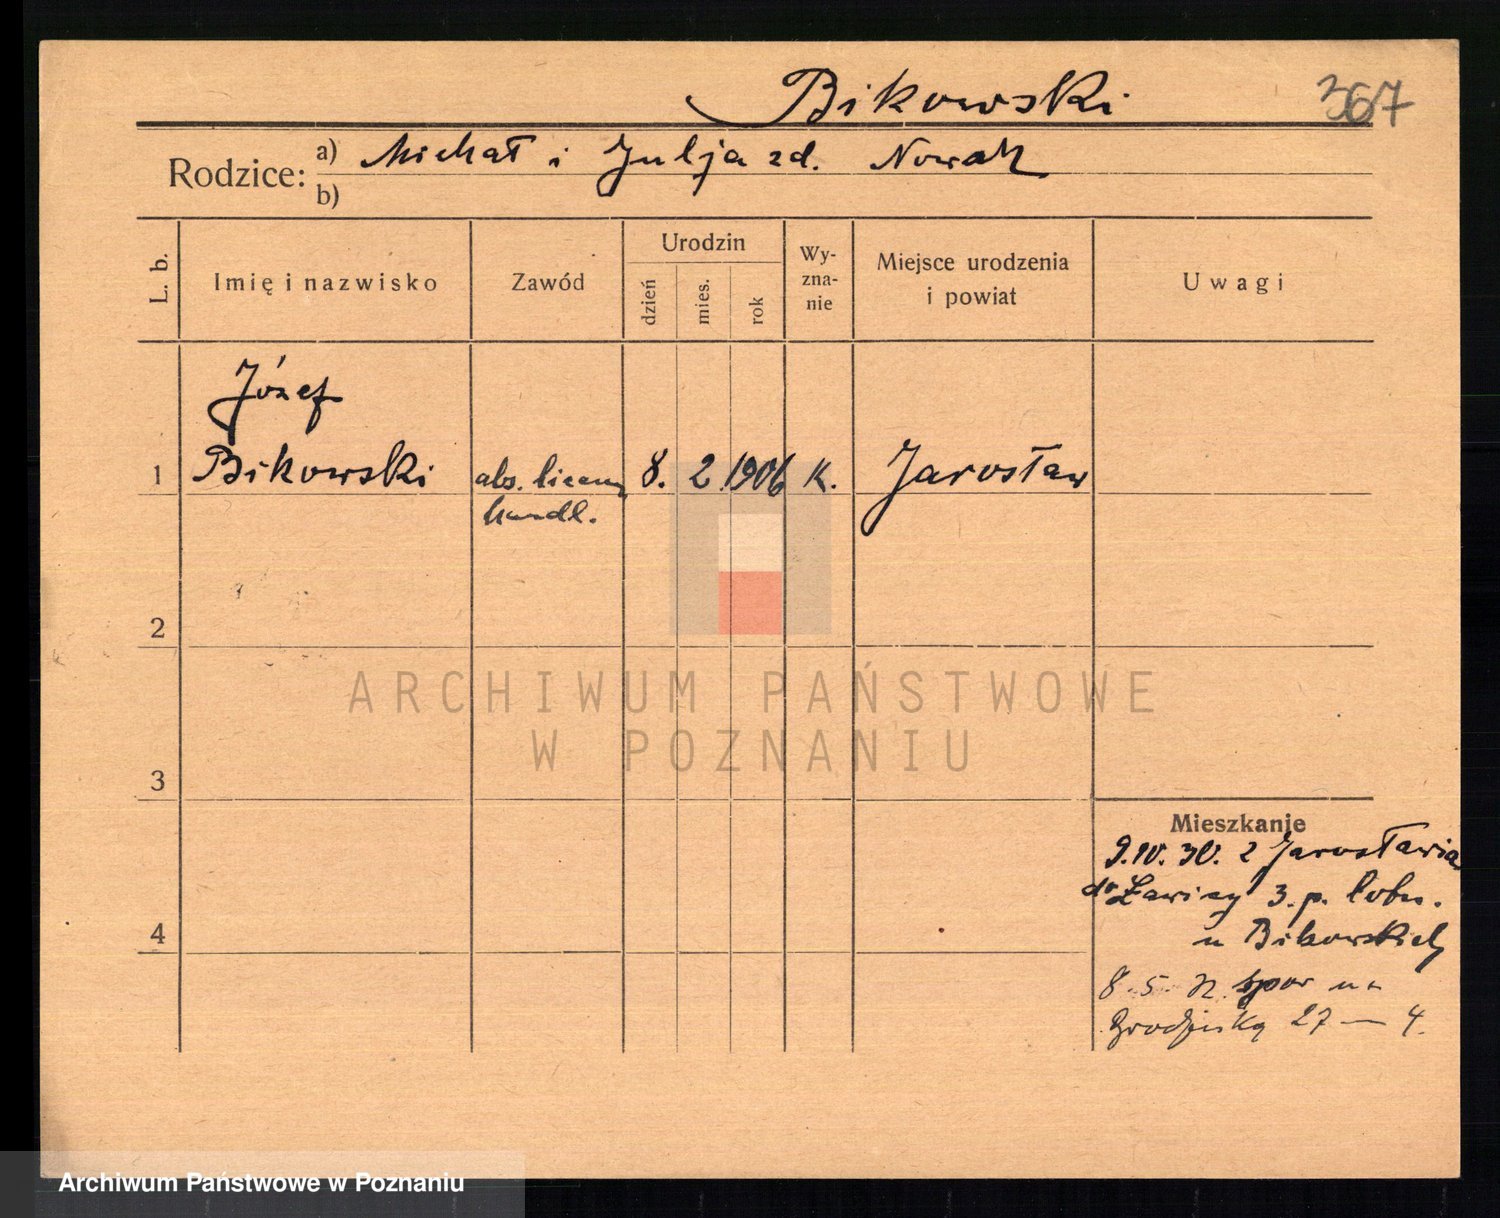 Bikowski 367
Rodzice: a) Michał i Julja zd. Nowak
b)
L. b. Imię i nazwisko Zawód Urodzin dzień mies. rok Wyznanie Miejsce urodzenia i powiat Uwagi
Józef
1 Bikowski abs. liceum 8. 2. 1906 K. Jarosław
handl.
2
ARCHIWUM PAŃSTWOWE
W POZNANIU
3
Mieszkanie
9.IV.30. z Jarosławia
do Ławicy 3. p. lotn.
4
u Bikowskich
8. 5. na
Grodziską 27 — 4.
Archiwum Państwowe w Poznaniu